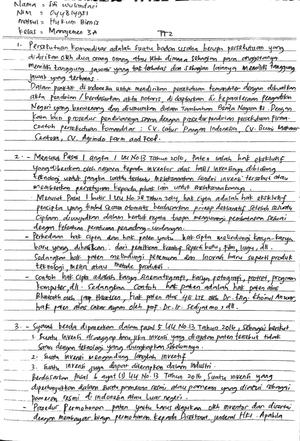 Nama = Sri Wulandari
Nim = 044814931
Matkul = Hukum Bisnis
Kelas = Manajemen 3A
TT2
1. Persekutuan komanditer adalah suatu badan usaha berupa persekutuan yang
didirikan oleh dua orang atau lebih dimana sebagian para anggotanya
memiliki tanggung jawab yang tak terbatas dan sebagian lainnya memiliki tanggung
jawab yang terbatas.
Dalam praktek di indonesia untuk mendirikan persekutuan komanditer dengan dibuatkan
akta pendirian / berdasarkan akta notaris, didaftarkan di kepaniteraan Pengadilan
Negeri yang berwenang dan diumumkan dalam Tambahan Berita Negara RI. Dengan
kata lain prosedur pendiriannya sama dengan prosedur pendirian persekutuan Firma.
Contoh persekutuan komanditer : CV. Cahur Pangan Indonesia, CV. Bumi
CV. Agrindo Farm and Food.
2. - Menurut Pasal 1 angka 1 UU No 13 Tahun 2016, Paten adalah hak eksklusif
yang diberikan oleh negara kepada inventor atas hasil invensinya dibidang
teknologi untuk jangka waktu tertentu melaksanakan sendiri invensi tersebut atau
memberikan persetujuan kepada pihak lain untuk melaksanakannya.
- Menurut Pasal 1 butir 1 UU No 28 Tahun 2014, hak cipta adalah hak eksklusif
pencipta yang timbul secara otomatis berdasarkan prinsip deklaratif setelah suatu
Ciptaan diwujudkan dalam bentuk nyata tanpa mengurangi pembatasan sesuai
dengan ketentuan peraturan perundang-undangan.
- Perbedaan hak cipta dan hak paten yaitu hak cipta melindungi karya-karya
baru yang dihasilkan dari pemikiran kreatif seperti buku, film, lagu, dll.
Sedangkan hak paten melindungi penemuan dan inovasi baru seperti produk
teknologi, mesin atau metode produksi.
- Contoh hak cipta adalah karya sinematografi, karya fotografi, potret, program
komputer, dll. Sedangkan Contoh hak paten adalah hak paten atas
hak paten atas 4G LTE oleh Dr. Eng. Khoirul Anwar,
hak paten atas cakar ayam oleh prof. Dr. Ir. Sedijatmo, dll.
3. - Syarat benda dipatenkan dalam pasal 5 UU No 13 Tahun 2016, sebagai berikut
1. Suatu invensi dianggap baru, jika invensi yang diajukan paten tersebut tidak
sama dengan teknologi yang diungkapkan sebelumnya.
2. Suatu invensi mengandung langkah inventif
3. Suatu invensi juga dapat diterapkan dalam industri.
Berdasarkan Pasal 6 ayat (1) UU No 13 Tahun 2016, suatu invensi yang
dipertunjukkan dalam suatu pameran resmi atau pameran yang diakui sebagai
pameran resmi di indonesia atau luar negeri.
- Prosedur Permohonan paten yaitu harus diajukan oleh inventor dan disertai
dengan membayar biaya permohonan kepada Direktorat Jenderal HKI. Apabila